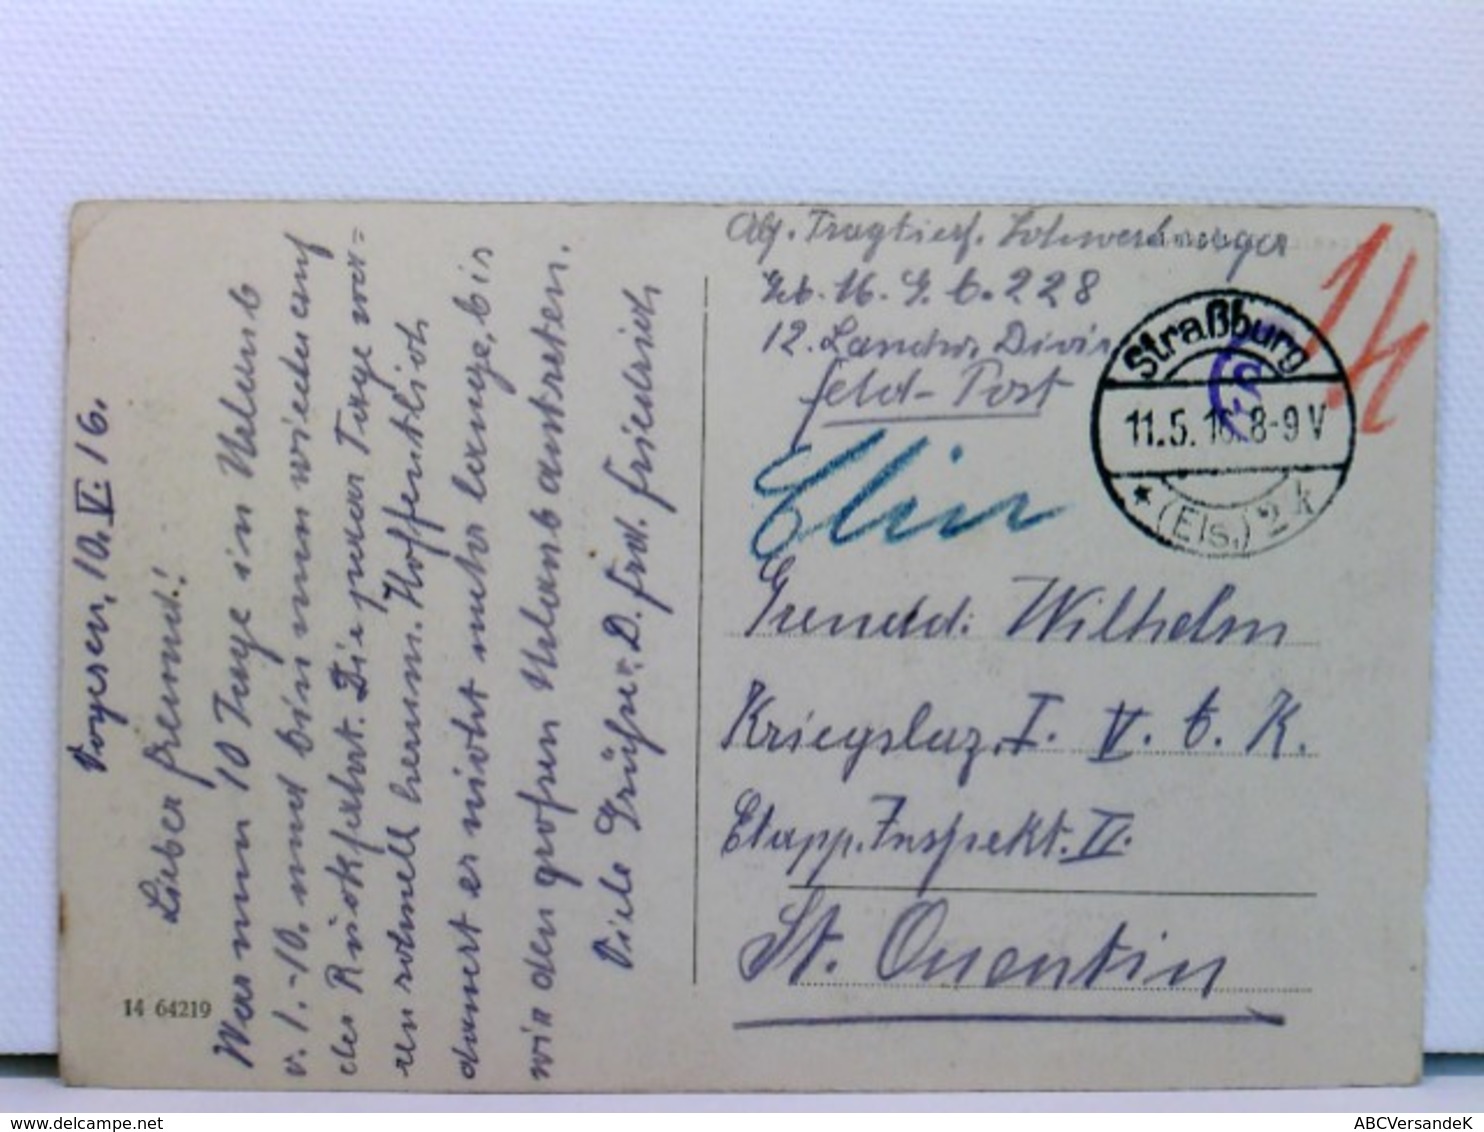 Vogesen, 10. V. 16.
Lieber Freund!
War nun 10 Tage in Urlaub
v. 1.-10. und bin nun wieder auf
der Rückfahrt. Die paar Tage wa=
ren schnell herum. Hoffentlich
dauert er nicht mehr lange, bis
wir den großen Urlaub antreten.
Viele Grüße v. D. Frd. Friedrich
14 64219
Abs. Tragtierf.
Geb. M. G. A. 228
12. Landw. Divis
Feld-Post
Straßburg
11.5.16. 8-9 V
* (Els.) 2 k
Wilhelm
Kriegslaz. I. V. b. K.
Etapp. Inspekt. II.
St. Quentin
ABCVersandeK